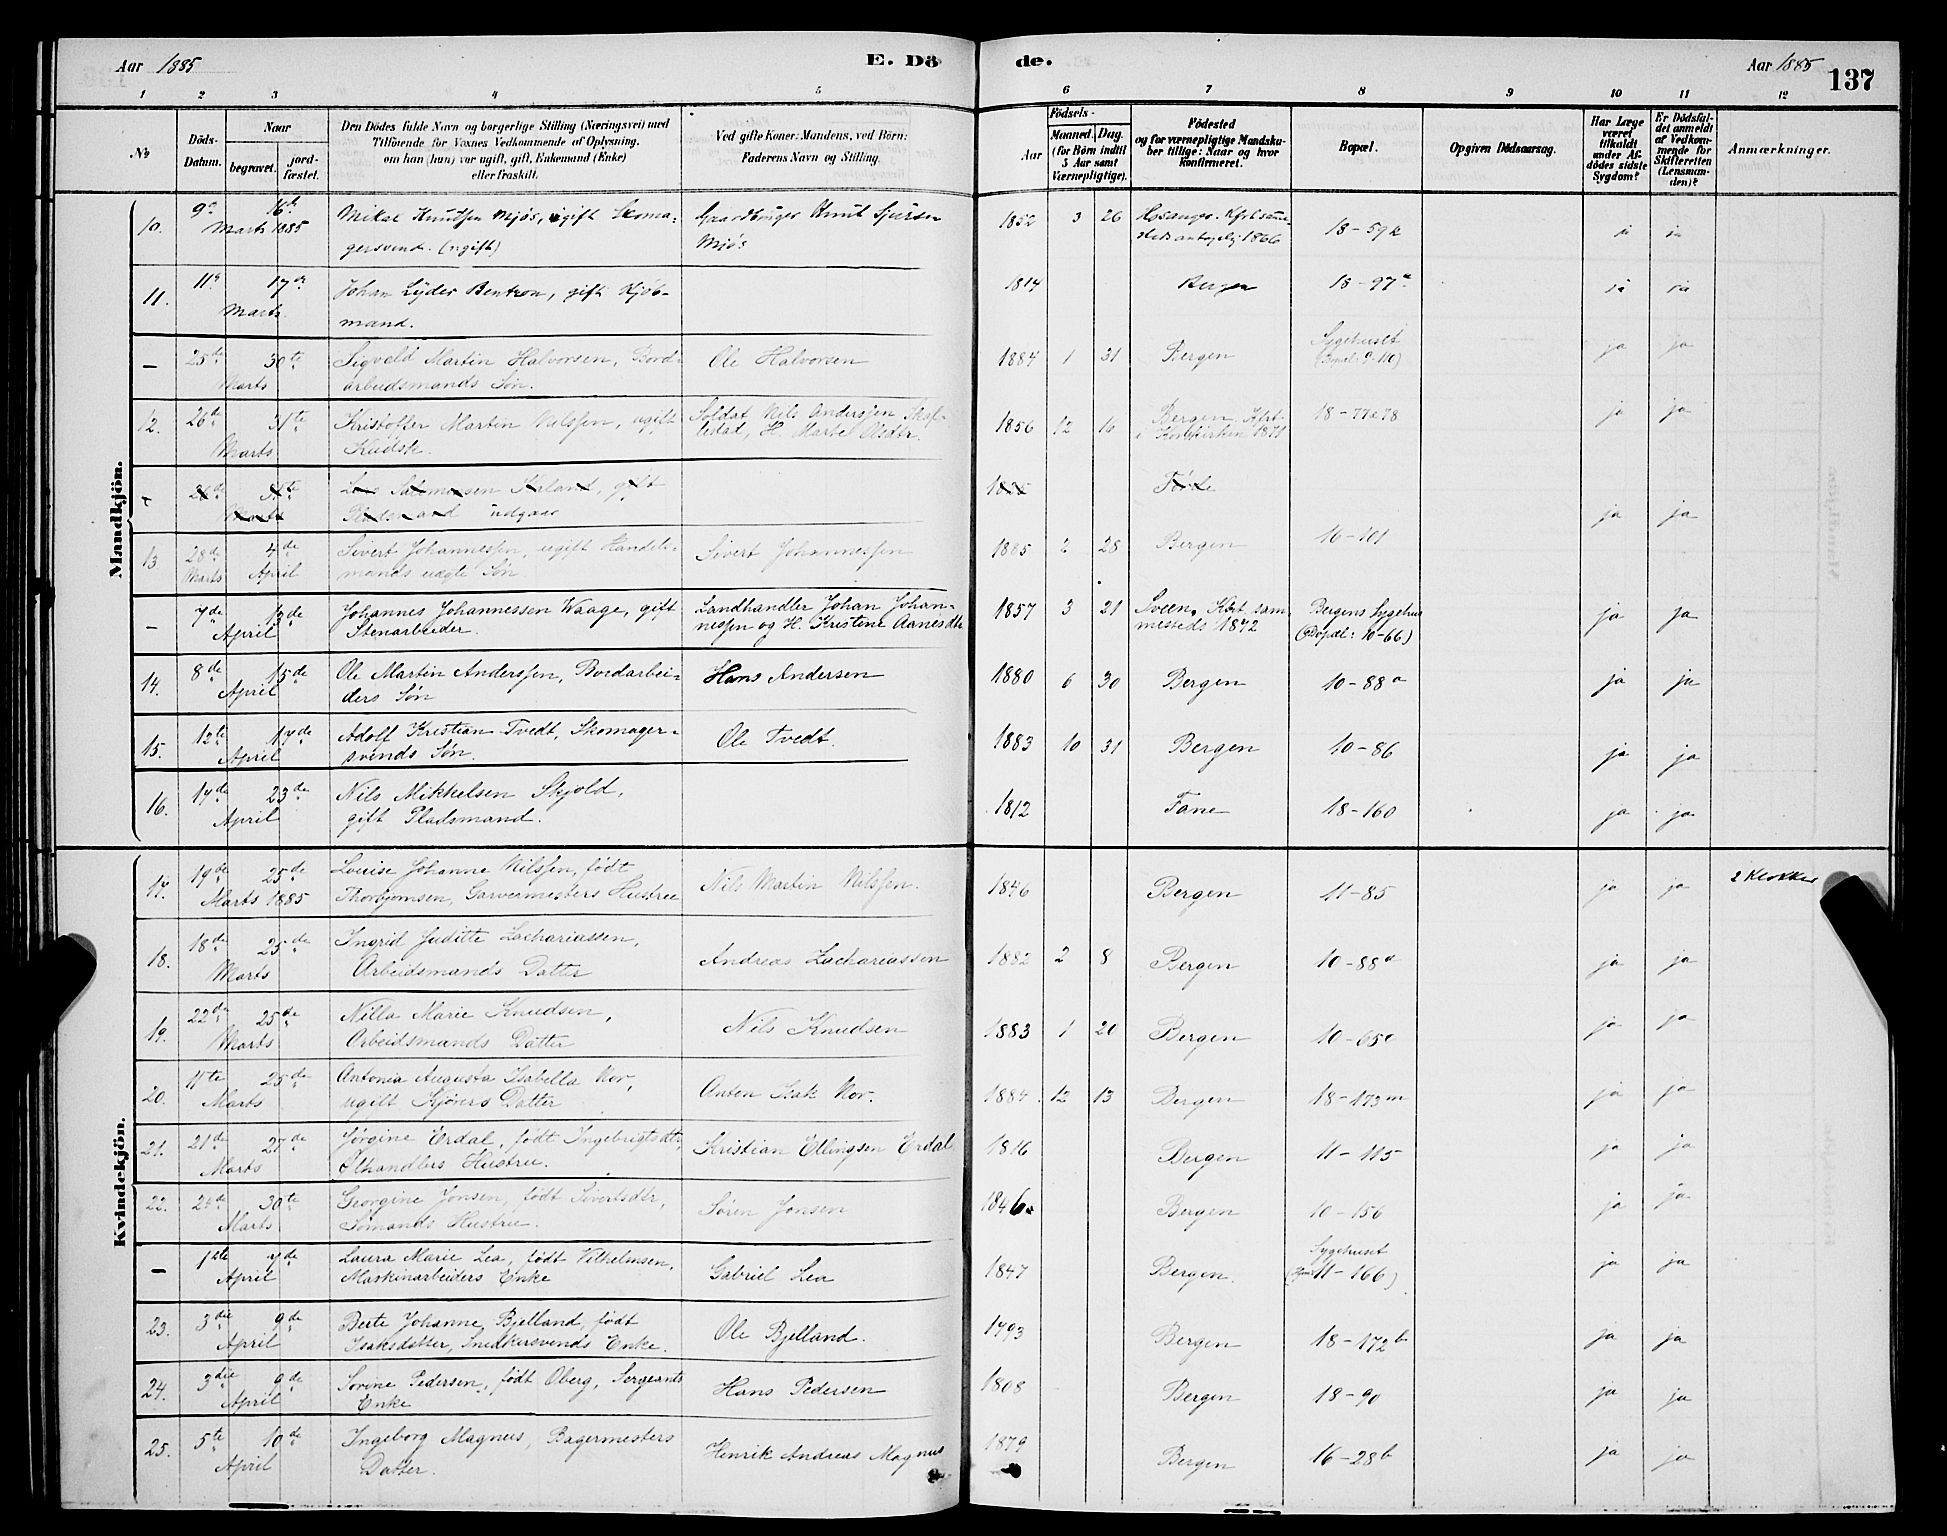 Aar 1885 E. Dö de. Aar 1885 137
1 2 3 4 5 6 7 8 9 10 11 12
No Döds-Datum. Naar begravet. jord-fæstet. Den Dödes fulde Navn og borgerlige Stilling (Næringsvei) med Tilföiende for Voxnes Vedkommende af Oplysning, om han (hun) var ugift, gift, Enkemand (Enke) eller fraskilt. Ved gifte Koner: Mandens, ved Börn: Faderens Navn og Stilling. Födsels- Aar Maaned. Dag. (for Börn indtil 5 Aar samt Værnepligtige). Födested og for værnepligtige Mandskaber tillige: Naar og hvor konfirmeret. Bopæl. Opgiven Dödsaarsag. Har Læge været tilkaldt under Afdödes sidste Sygdom? Er Dödsfaldet anmeldt af Vedkommende for Skifteretten (Lensmanden)? Anmærkninger.
Mandkjön.
10. 9de 16de Mikal Knutsen Mjøs, gift Skoma- Gaardbruger Knut Sjursen 1852 3 26 18-59k ja ja
Marts 1885 gersvend. (ugift) Mjøs 1866
11. 11te 17de Johan Lyder Bentzon, gift Kjøb- 1814 Bergen 18-97a ja ja
Marts mand.
- 25de 30te Sigvald Martin Halvorsen, Bord- Ole Halvorsen 1884 1 31 Bergen Sygehuset ja ja
Marts arbeidsmands Søn. (Bopæl: 9-110)
12. 26de 31te Kristoffer Martin Nilssen, ugift Soldat Nils Anderssen 1856 12 16 Bergen. Kfrt. 18-77 78 ja ja
Marts Kudsk. H. Marte Olsdtr. i Korskirken 1871
Kaland, gift Førde
Marts Pladsmand udgaar ja ja
13 28de 4de Sivert Johannessen, ugift Handels- Sivert Johannessen 1885 2 28 Bergen 16-101
Marts April mands uægte Søn
- 7de 13de Johannes Johannessen Waage, gift Sandhandler Johan Johan- 1857 3 21 Sveen. Kfrt. sam- Bergens Sygehus ja ja
April Stenarbeider. nessen og H. Kristene Aanesdtr mesteds 1872 (Bopæl: 10-66)
14. 8de 15de Ole Martin Anderssen, Bordarbei- Hans Andersen 1880 6 30 Bergen 10-88a ja ja
April ders Søn
15. 12te 17de Adolf Kristian Tvedt, Skomager- Ole Tvedt. 1883 10 31 Bergen 10-86 ja ja
April svends Søn.
16. 17de 23de Nils Mikkelsen Skjold, 1812 Fane 18-160 ja ja
April gift Pladsmand.
Kvindekjön.
17. 19de 25de Lovise Johanne Nilssen, født Nils Martin Nilssen. 1846 Bergen 11-85 ja ja 2 Klokker
Marts 1885 Thorbjørnsen, Garvermesters Hustru
18. 18de 25de Ingrid Juditte Zachariassen, Andreas Zachariassen 1882 2 8 Bergen 10-88d ja ja
Marts Arbeidsmands Datter
19. 22de 25de Nilla Marie Knudsen, Nils Knudsen 1883 1 20 Bergen 10-65c ja ja
Marts Arbeidsmands Datter
20. 11te 25de Antonia Augusta Isabella Nor, Anton Isak Nor. 1884 12 13 Bergen 18-173m ja ja
Marts ugift Kjørers Datter
21. 21de 27de Jørgine Erdal, født Ingebrigtsdtr, Kristian Ellingsen Erdal 1816 Bergen 11-115 ja ja
Marts Ølhandlers Hustru.
22. 25de 30te Georgine Jonsen, født Sivertsdtr, Søren Jonsen 1846 Bergen 10-156 ja ja
Marts Sømands Hustru.
- 1ste 7de Laura Marie Lea, født Vilhelmsen, Gabriel Lea 1847 Bergen. Sygehuset ja ja
April Maskinarbeiders Enke 11-166)
23. 3die 9de Berte Johanne Bjelland, født Ole Bjelland. 1793 Bergen 18-172b ja ja
April Isaksdatter, Snedkersvends Enke.
24. 3die 9de Sorine Pedersen, født Oberg, Sergeants Hans Pedersen 1808 Bergen 18-90 ja ja
April Enke
25. 5te 10de Ingeborg Magnus, Bagermesters Henrik Andreas Magnus 1879 Bergen 16-28b ja ja
April Datter.